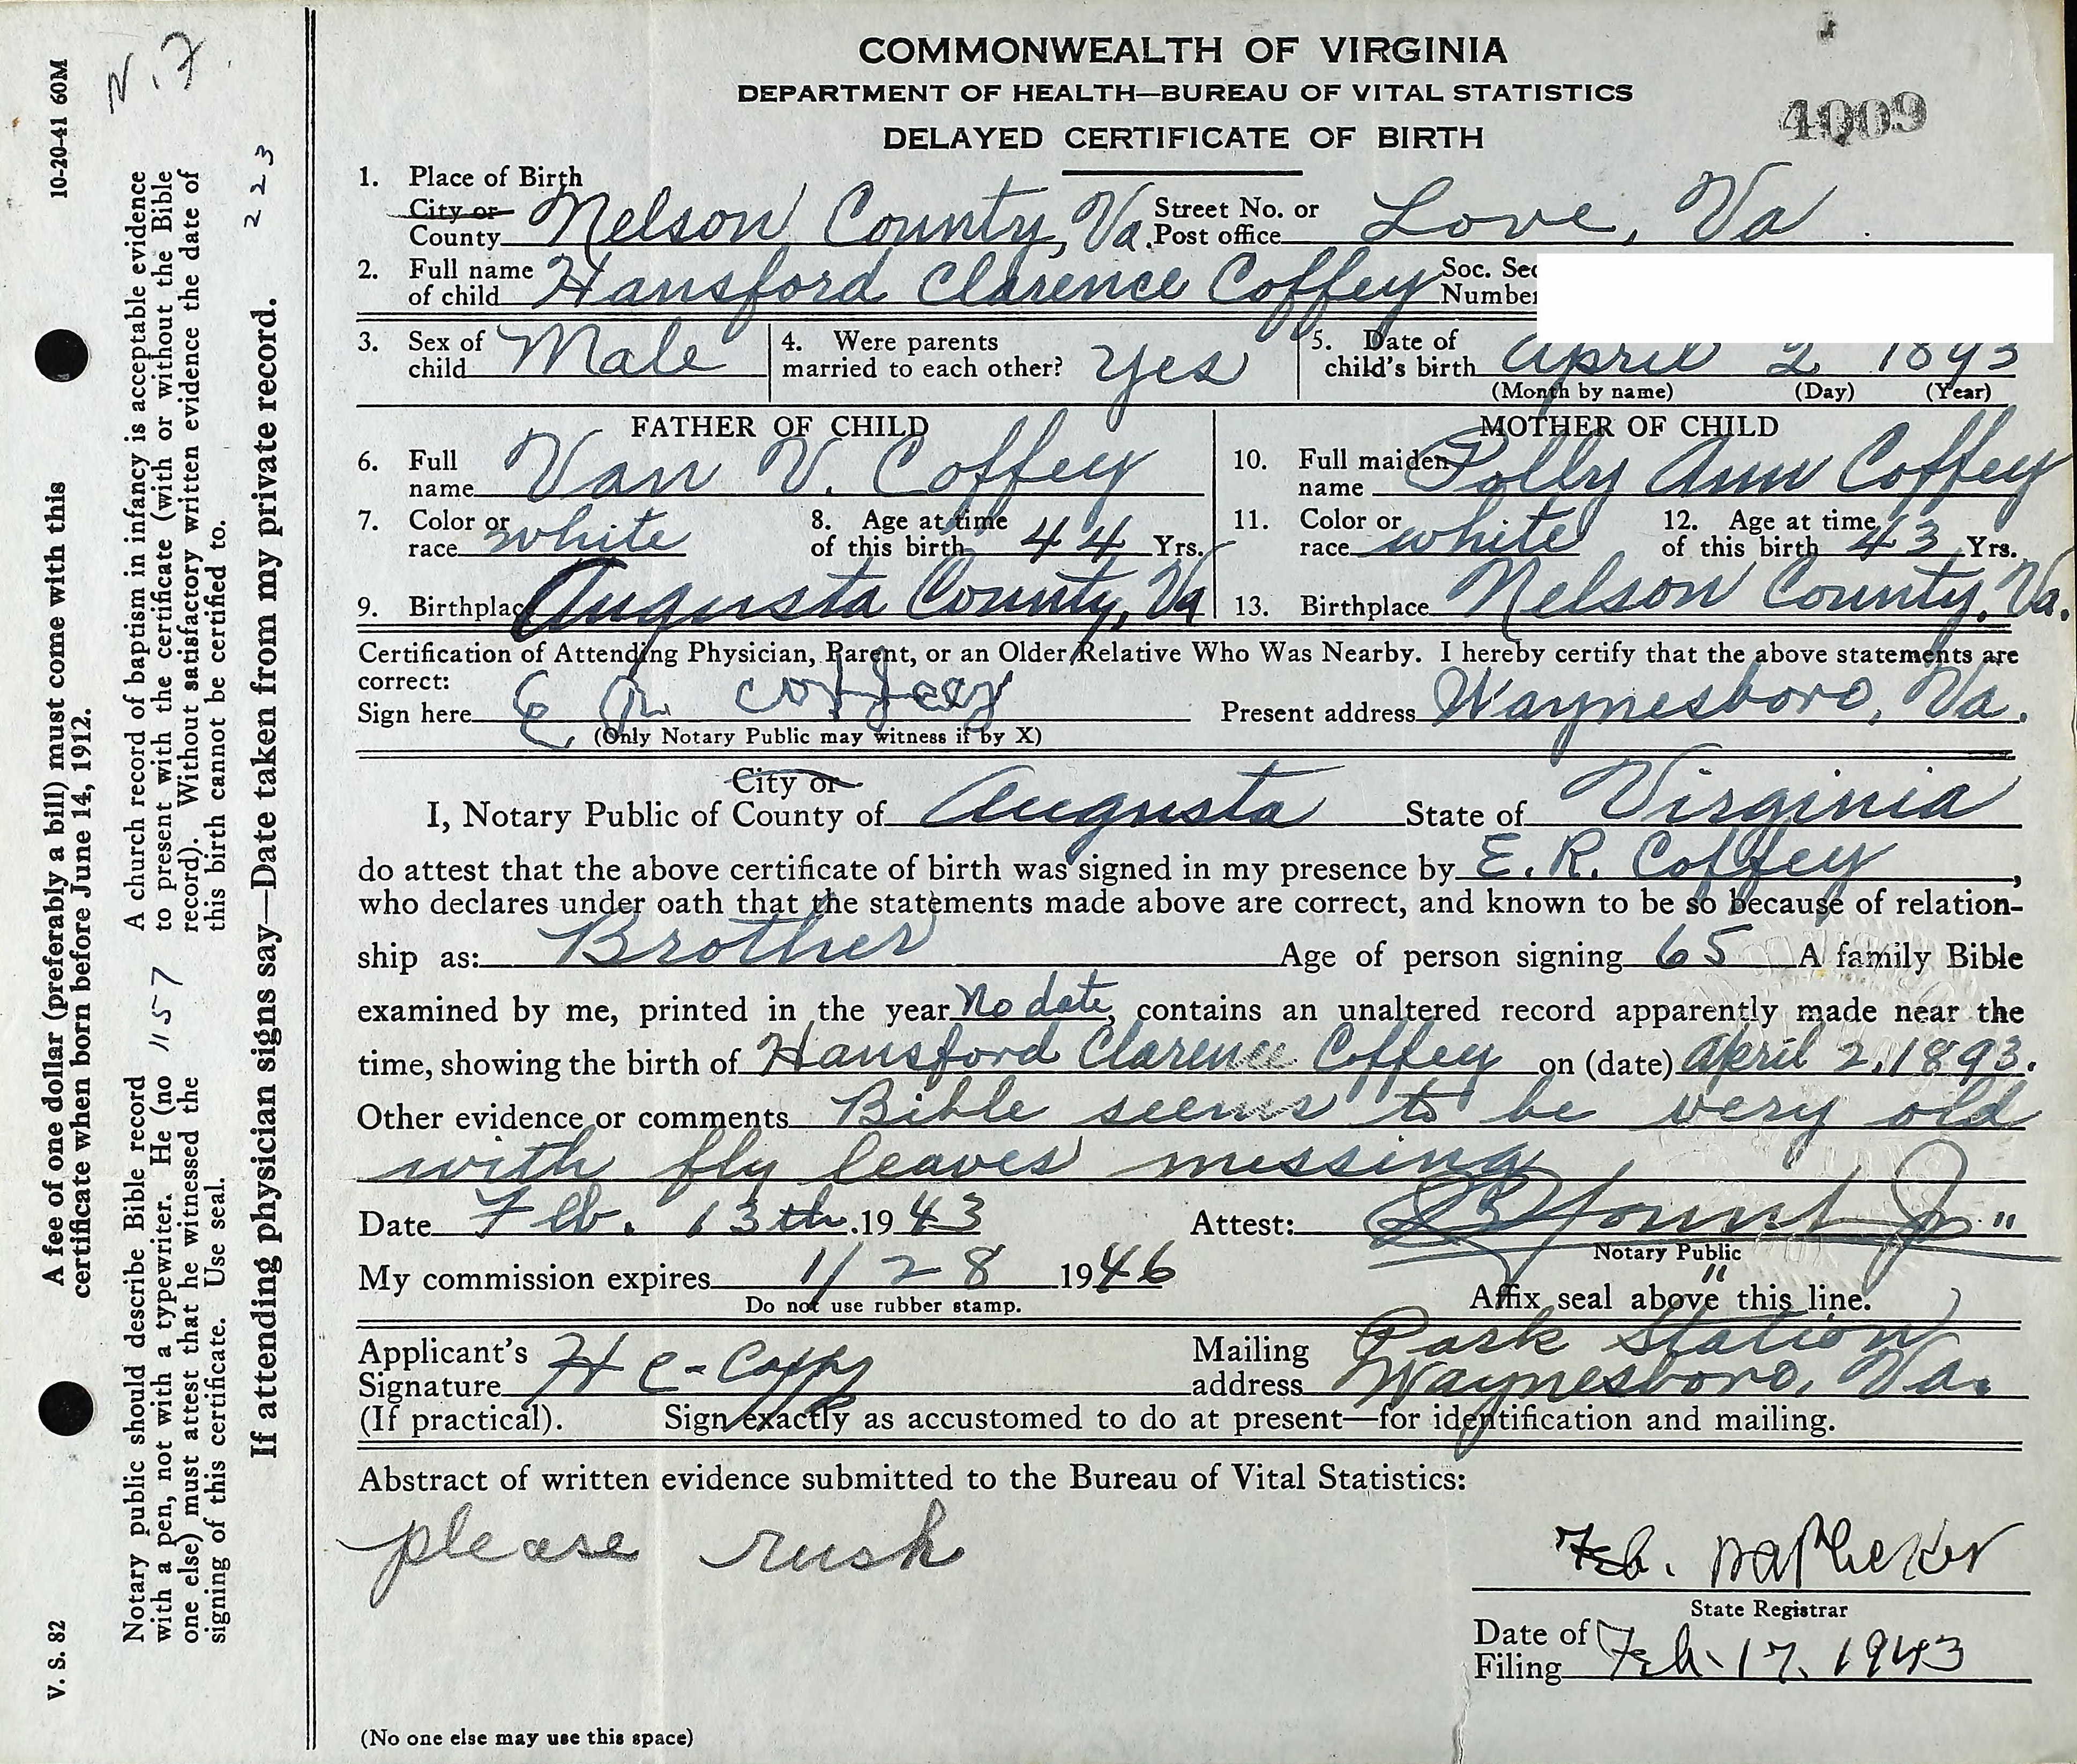 COMMONWEALTH OF VIRGINIA
DEPARTMENT OF HEALTH—BUREAU OF VITAL STATISTICS
DELAYED CERTIFICATE OF BIRTH
4009
1. Place of Birth
City or County Nelson County, Va. Street No. or Post office Love, Va
2. Full name of child Hansford Clarence Coffey Soc. Sec Number
3. Sex of child Male 4. Were parents married to each other? Yes 5. Date of child's birth April 2 1893
(Month by name) (Day) (Year)
FATHER OF CHILD MOTHER OF CHILD
6. Full name Van V. Coffey 10. Full maiden name Polly Ann Coffey
7. Color or race white 8. Age at time of this birth 44 Yrs. 11. Color or race white 12. Age at time of this birth 43 Yrs.
9. Birthplace Augusta County, Va 13. Birthplace Nelson County, Va.
Certification of Attending Physician, Parent, or an Older Relative Who Was Nearby. I hereby certify that the above statements are
correct:
Sign here E R Coffey Present address Waynesboro, Va.
(Only Notary Public may witness if by X)
City or
I, Notary Public of County of Augusta State of Virginia
do attest that the above certificate of birth was signed in my presence by E. R. Coffey,
who declares under oath that the statements made above are correct, and known to be so because of relation-
ship as: Brother Age of person signing 65 A family Bible
examined by me, printed in the year No date, contains an unaltered record apparently made near the
time, showing the birth of Hansford Clarence Coffey on (date) April 2, 1893.
Other evidence or comments Bible seems to be very old
with fly leaves missing
Date Feb. 13th. 1943 Attest: Yount Jr.
Notary Public
My commission expires 1/28 1946
Do not use rubber stamp. Affix seal above this line.
Applicant's Signature H C-Coffey Mailing address Park Station
Waynesboro, Va.
(If practical). Sign exactly as accustomed to do at present—for identification and mailing.
Abstract of written evidence submitted to the Bureau of Vital Statistics:
please rush
Feb.
State Registrar
Date of Filing Feb. 17. 1943
(No one else may use this space)
V. S. 82 A fee of one dollar (preferably a bill) must come with this 10-20-41 60M
certificate when born before June 14, 1912.
N. F.
Notary public should describe Bible record
with a pen, not with a typewriter. He (no
one else) must attest that he witnessed the
signing of this certificate. Use seal.
1157
A church record of baptism in infancy is acceptable evidence
to present with the certificate (with or without the Bible
record). Without satisfactory written evidence the date of
this birth cannot be certified to.
223
If attending physician signs say—Date taken from my private record.